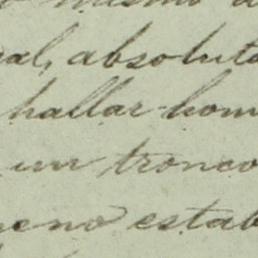 mismo
al, absoluto
hallar hom
un tronco
eno estab